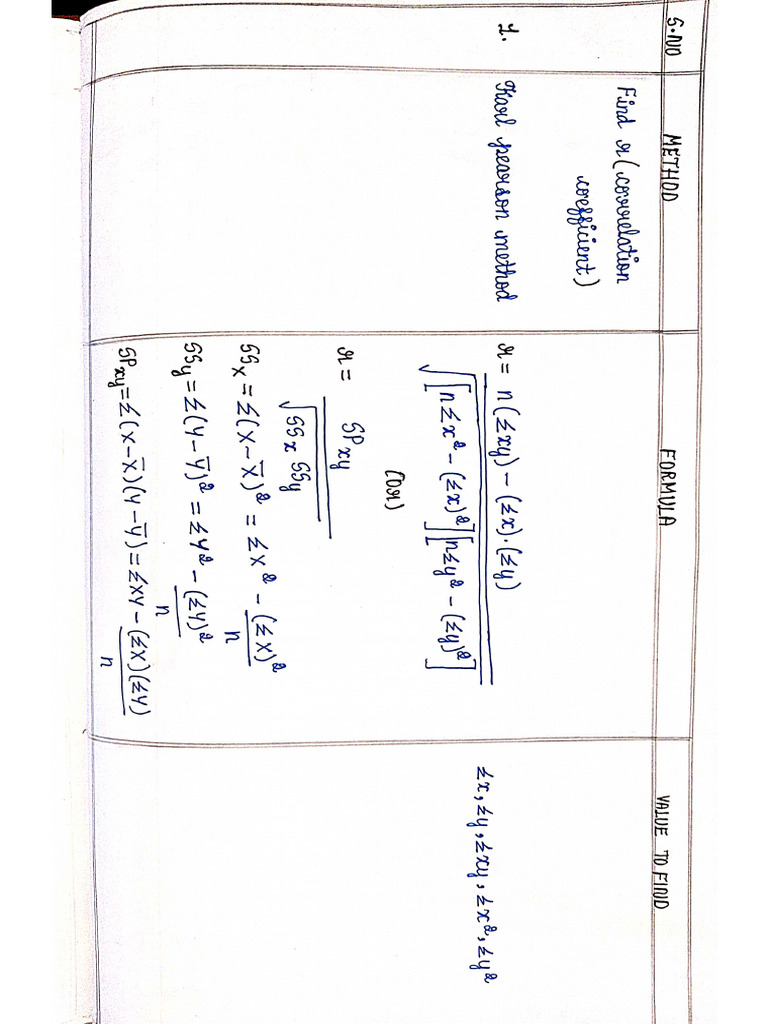 S.NO METHOD FORMULA VALUE TO FIND
Find r (correlation
coefficient)
1. Karl pearson method r = n(Σxy) - (Σx)·(Σy) / √[nΣx² - (Σx)²][nΣy² - (Σy)²] Σx, Σy, Σxy, Σx², Σy²
(or)
r = SPxy / √SSx SSy
SSx = Σ(X - X̄)² = ΣX² - (ΣX)² / n
SSy = Σ(Y - Ȳ)² = ΣY² - (ΣY)² / n
SPxy = Σ(X - X̄)(Y - Ȳ) = ΣXY - (ΣX)(ΣY) / n